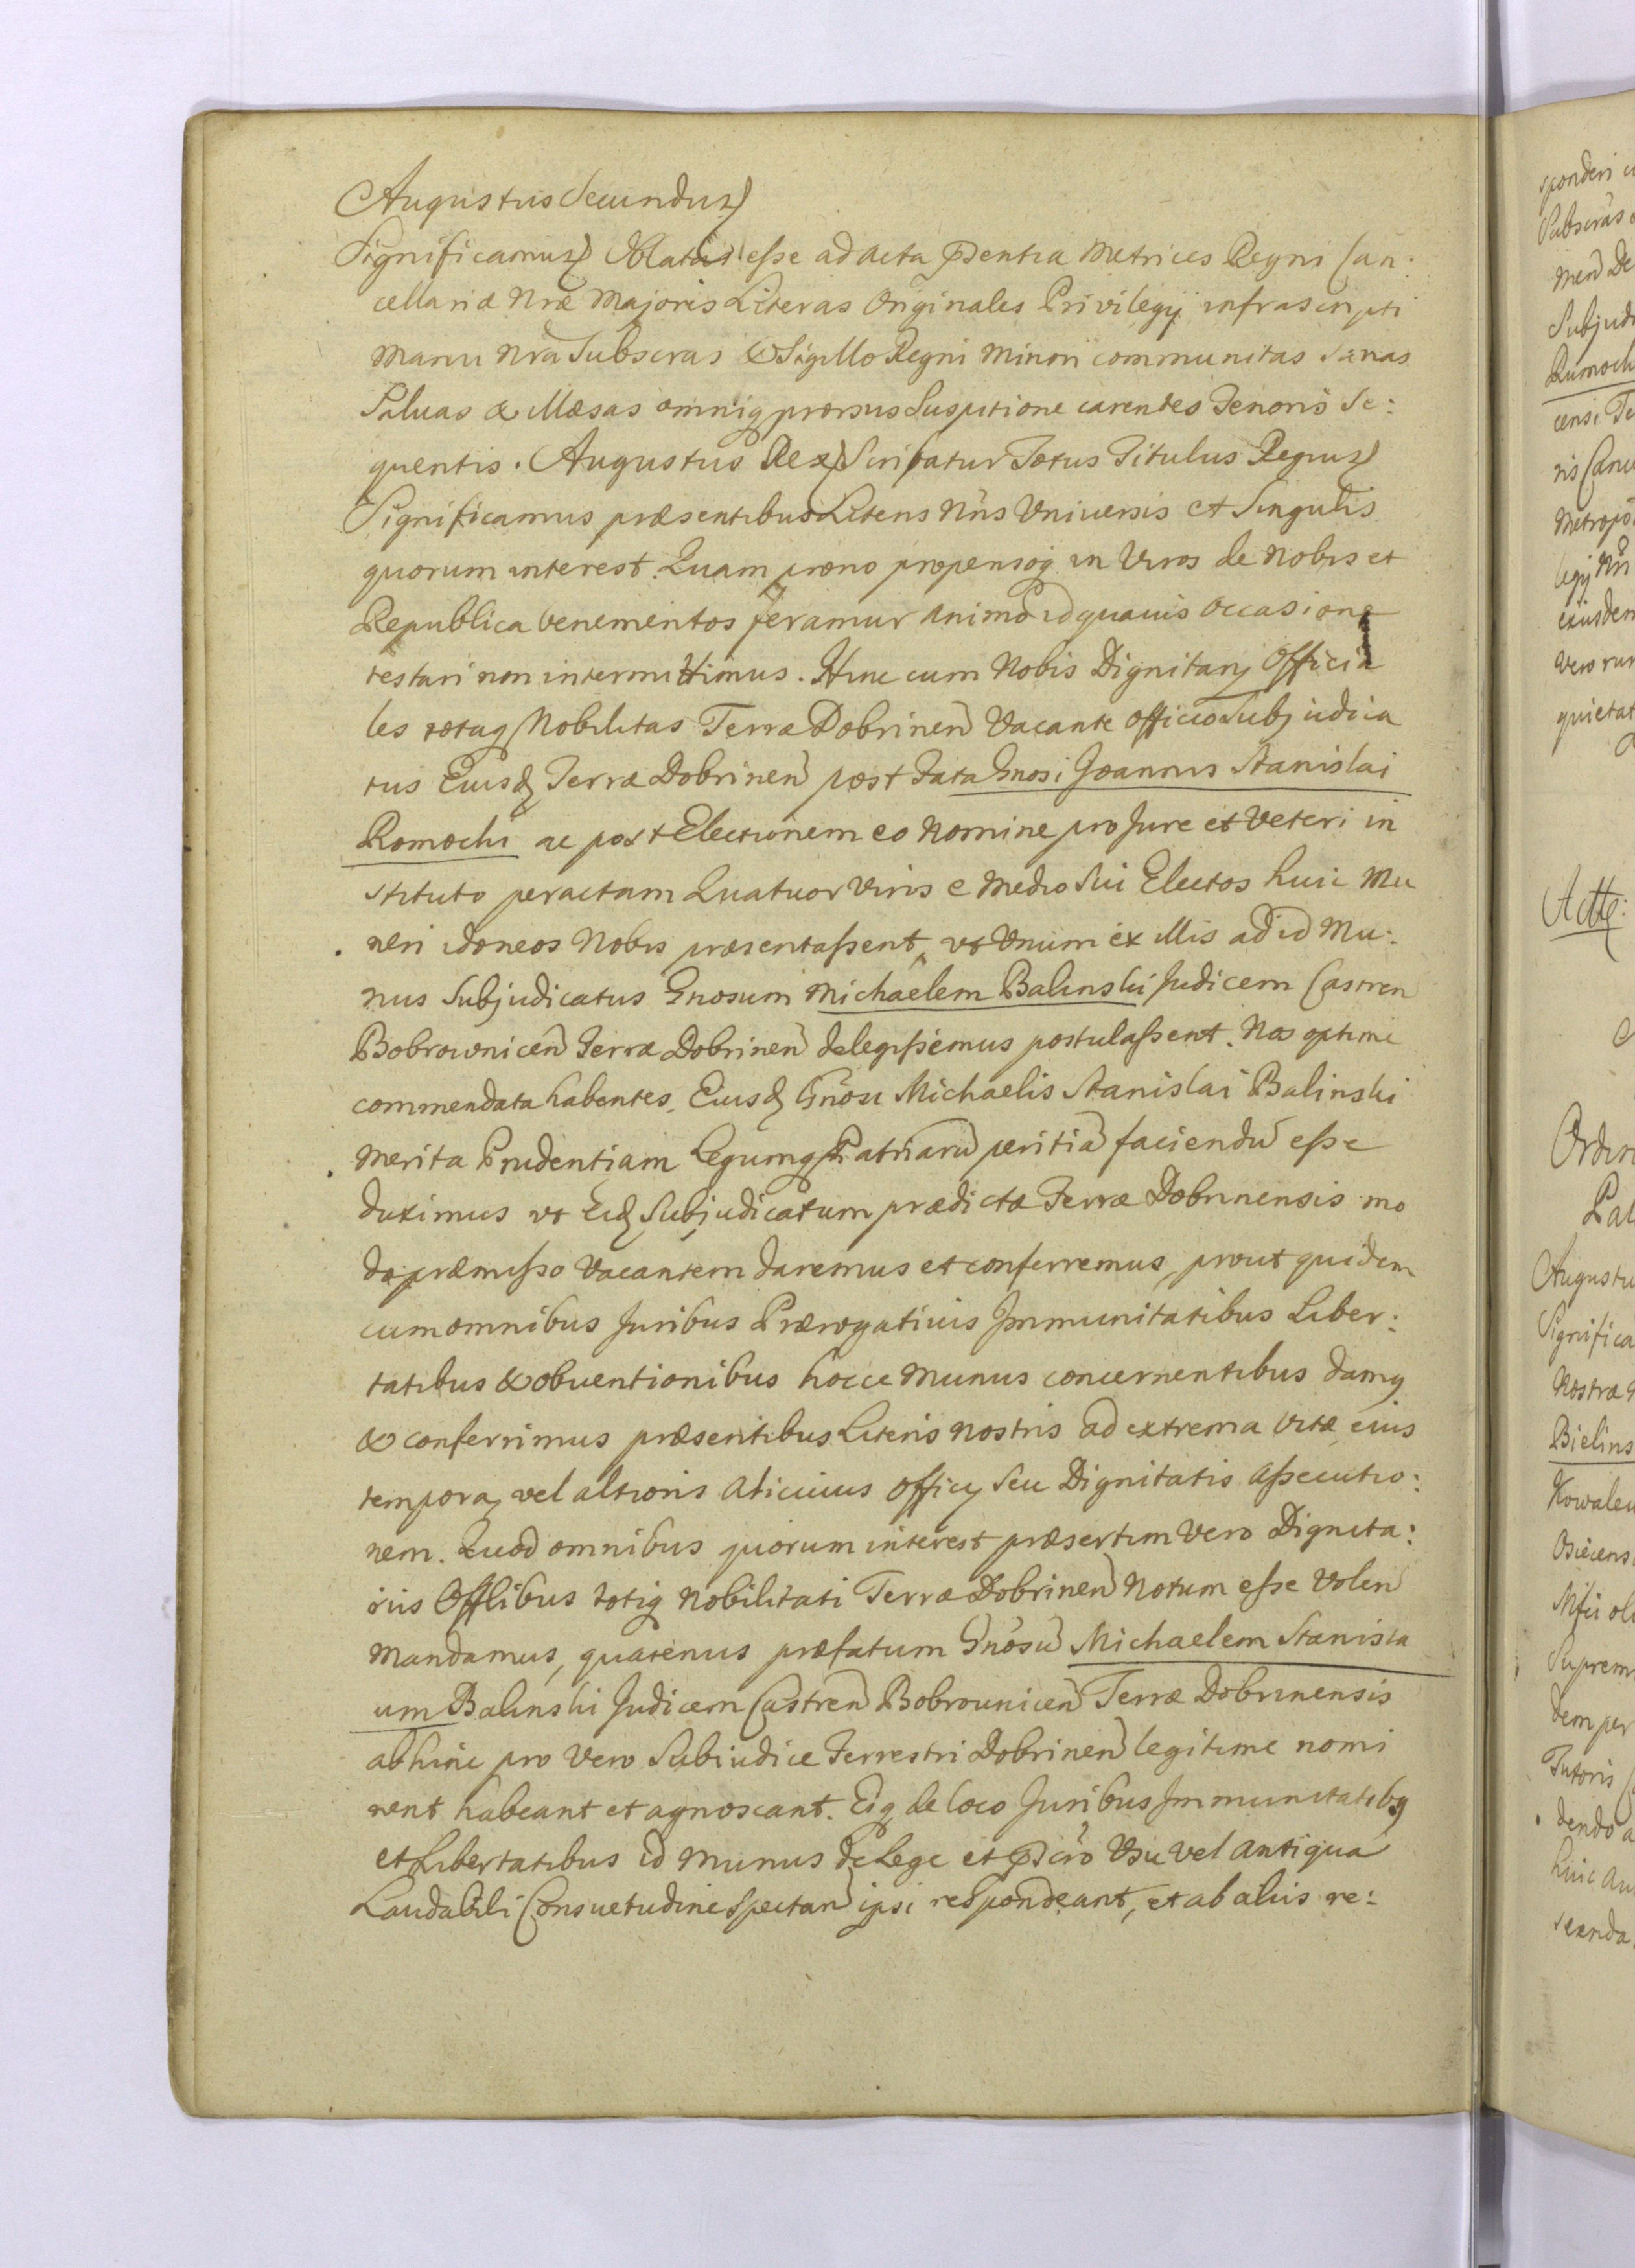 Augustus Secundus
Significamus Oblatas esse ad Acta pdentia Metrices Regni Can:
cellariæ Nræ Majoris Literas Originales Privilegij infrascripti
Manu Nra Subscras & Sigillo Regni Minori communitas Sanas
Saluas & Illæsas omniq prorsus Suspitione carentes Tenoris Se:
quentis. Augustus Rex Scribatur Totus Titulus Regius
Significamus præsentibus Literis Nris Vniuersis et Singulis
quorum interest. Quam prono propensoq in Viros de Nobis et
Republica benemeritos feramur Animo id quauis Occasione
testari non intermittimus. Hinc cum Nobis Dignitarij Officia
les totaq Nobilitas Terræ Dobrinen Vacante Officio Subjudica
tus Eiusd Terræ Dobrinen post Fata Gnosi Joannis Stanislai
Romochi ac post Electionem eo Nomine pro Jure et Veteri in
stituto peractam Quatuor Viris e Medio Sui Electos huic Mu
neri idoneos Nobis præsentassent, vt Vnum ex Illis ad id Mu:
nus Subjudicatus Gnosum Michaelem Balinski Judicem Castren
Bobrownicen Terræ Dobrinen delegissemus postulassent. Nos optime
commendata habentes, Eiusd Gnosi Michaelis Stanislai Balinski
Merita Prudentiam Legumq Patriaru peritia faciendu esse
duximus vt Eid Subjudicatum prædictæ Terræ Dobrinensis mo
do præmisso Vacantem daremus et conferremus, prout quidem
cum omnibus Juribus Prærogatiuis Immunitatibus Liber:
tatibus & obuentionibus hocce Munus concernentibus damq
& conferrimus præsentibus Literis Nostris ad extrema Vitæ eius
tempora, vel altioris Alicuius Officij Seu Dignitatis Assecutio:
nem. Quod omnibus quorum interest præsertim Vero Dignita:
riis Offlibus totiq Nobilitati Terræ Dobrinen Notum esse Volen
Mandamus, quatenus præfatum Gnosu Michaelem Stanisla
um Balinski Judicem Castren Bobrounicen Terræ Dobrinensis
abhinc pro Vero Subiudice Terrestri Dobrinen legitime nomi
nent habeant et agnoscant. Eiq de loco Juribus Immunitatibq
et Libertatibus id Munus de Lege et Vsu vel Antiqua
Laudabili Consuetudine Spectan ipsi respondeant, et ab aliis re: